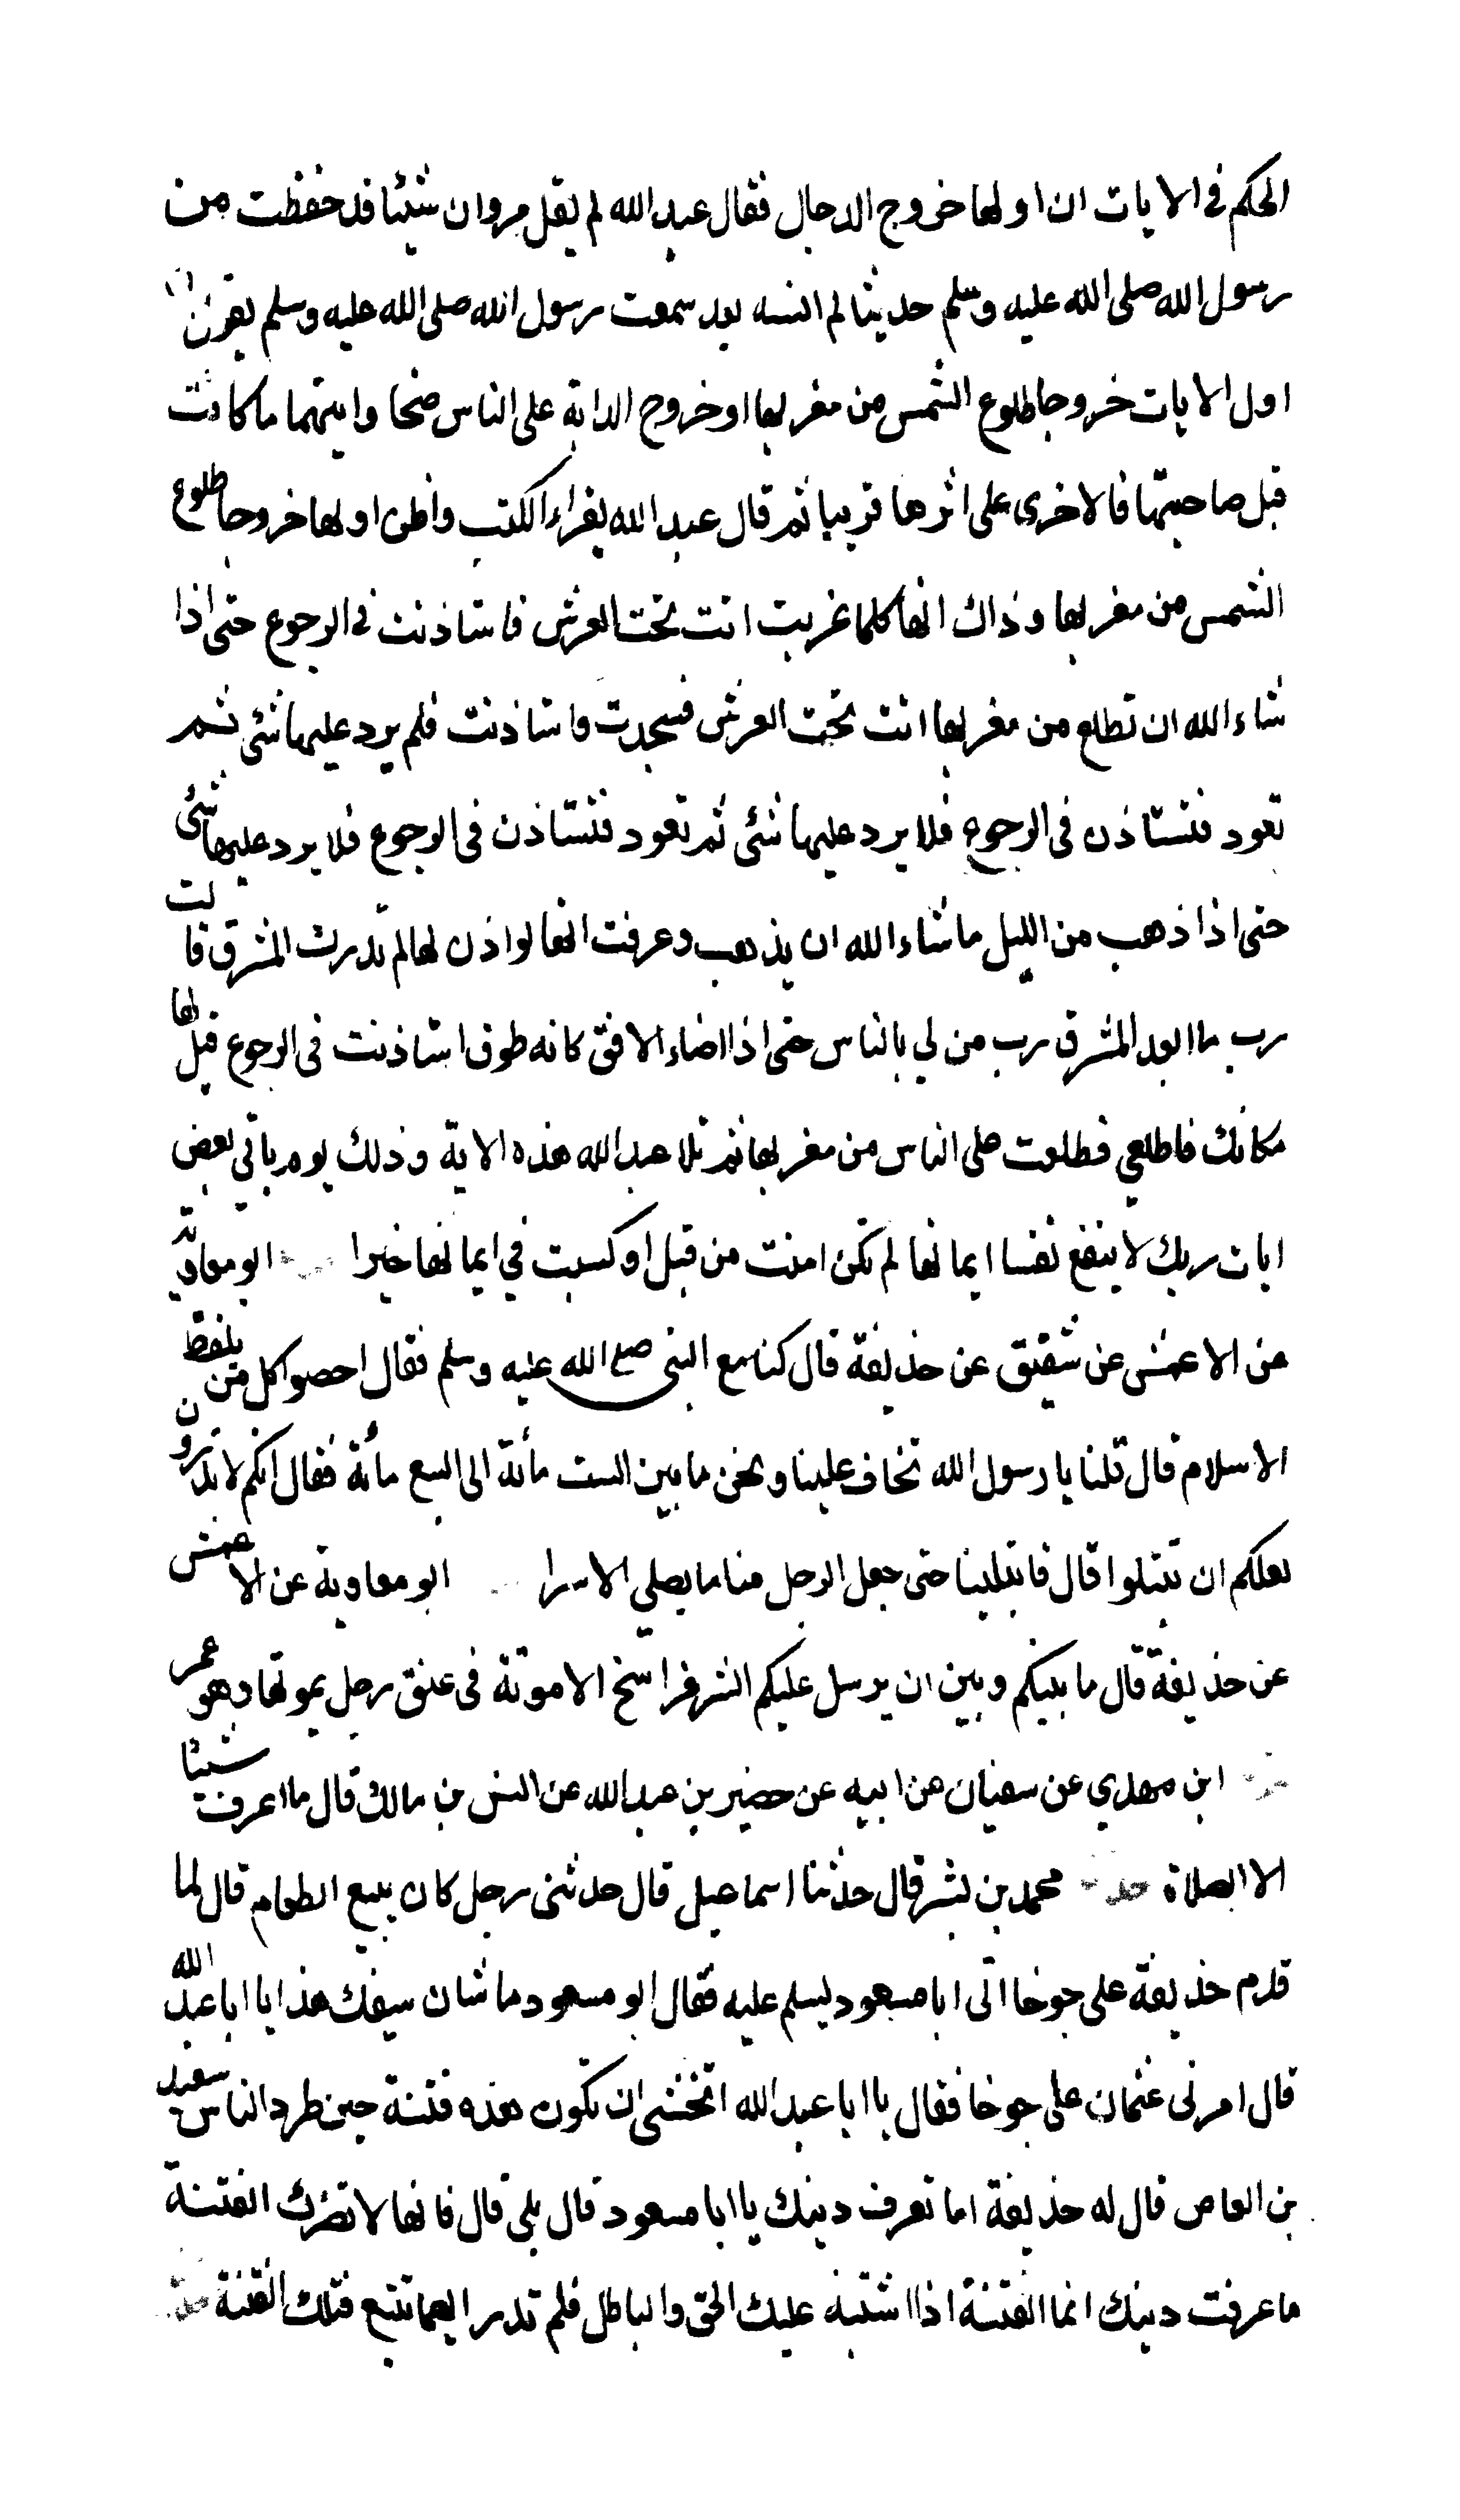 الحكم في الايات ان اولها خروج الدجال فقال عبد الله لم يقل مروان شيئا قد حفظت من
رسول الله صلى الله عليه وسلم حديثا لم انسه بعد سمعت رسول الله صلى الله عليه وسلم يقول ان
اول الايات خروجا طلوع الشمس من مغربها او خروج الدابة على الناس ضحا وايتهما ما كانت
قبل صاحبتها فالاخرى على اثرها قريبا ثم قال عبد الله يقراء الكتب واظن اولها خروجا طلوع
الشمس من مغربها وذاك انها كلما غربت اتت تحت العرش فاستاذنت في الرجوع حتى اذا
شاء الله ان تطلع من مغربها اتت تحت العرش فسجدت واستاذنت فلم يرد عليها شئ ثم
تعود فتستاذن في الرجوع فلا يرد عليها شئ ثم تعود فتستاذن في الرجوع فلا يرد عليها شئ
حتى اذا ذهب من الليل ما شاء الله ان يذهب وعرفت انها لو اذن لها لم تدرك المشرق قالت
رب ما ابعد المشرق رب من لي بالناس حتى اذا اضاء الافق كانه طوق استاذنت في الرجوع قيل لها
مكانك فاطلعي فطلعت على الناس من مغربها ثم تلا عبد الله هذه الاية وذلك يوم ياتي بعض
ايات ربك لا ينفع نفسا ايمانها لم تكن امنت من قبل او كسبت في ايمانها خيرا ابو معاوية
عن الاعمش عن شقيق عن حذيفة قال كنا مع النبي صلى الله عليه وسلم فقال احصوا كل من يلفظ
الاسلام قال قلنا يا رسول الله تخاف علينا ونحن ما بين الست مائة الى السبع مائة فقال انكم لا تدرون
لعلكم ان تبتلوا قال فابتلينا حتى جعل الرجل منا ما يصلي الا سرا ابو معاوية عن الاعمش
عن حذيفة قال ما بينكم وبين ان يرسل عليكم الشر فراسخ الا موتة في عنق رجل يموتها وهو عمر
ابن مهدي عن سفيان عن ابيه عن حضير بن عبد الله عن انس بن مالك قال ما اعرف شيئا
الا الصلاة حد محمد بن بشر قال حدثنا اسماعيل قال حدثني رجل كان يبيع الطعام قال لما
قدم حذيفة على جوخا اتى ابا مسعود ليسلم عليه فقال ابو مسعود ما شان سيفك هذا يا ابا عبد الله
قال امرني عثمان على جوخا فقال يا ابا عبد الله اتخشى ان تكون هذه فتنة حين طرد الناس سعيد
بن العاص قال له حذيفة اما تعرف دينك يا ابا مسعود قال بلى قال فانها لا تضرك الفتنة
ما عرفت دينك انما الفتنة اذا اشتبه عليك الحق والباطل فلم تدر ايهما تتبع فتلك الفتنة